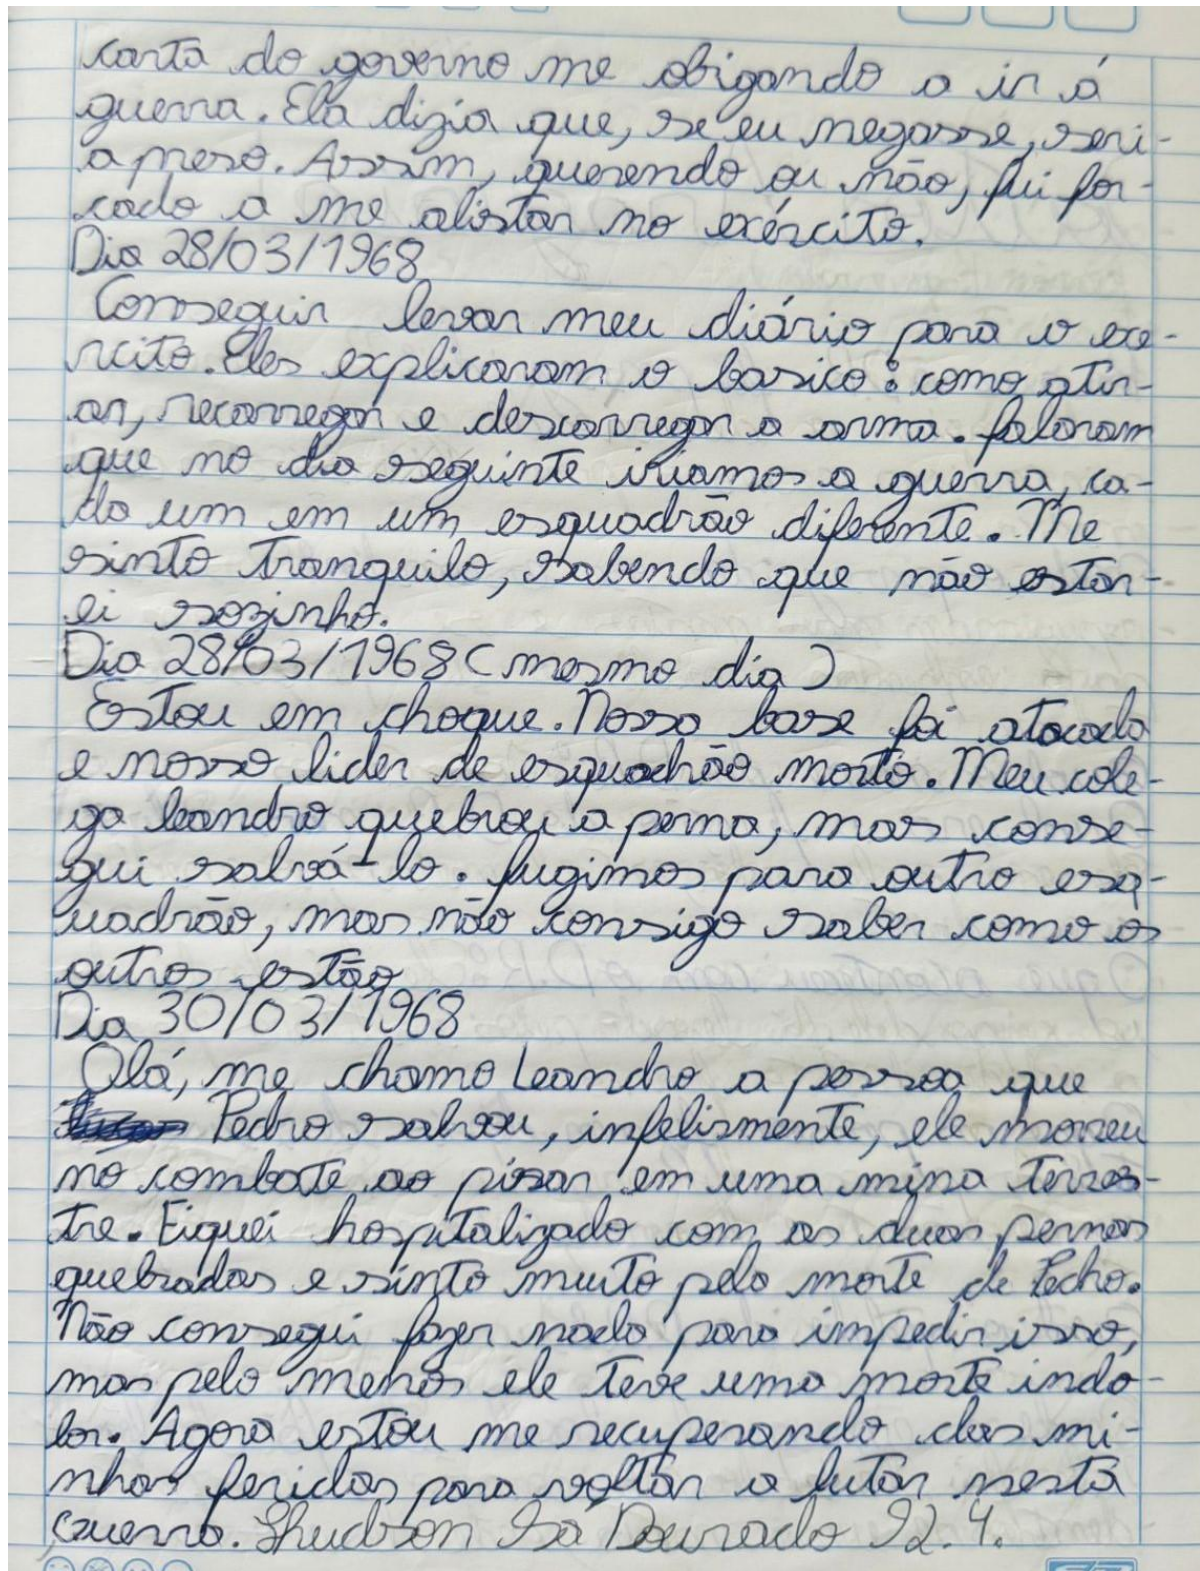 carta do governo me obigando a ir á
guerra. Ela dizia que, se eu negasse, seri-
a preso. Assim, querendo ou não, fui for-
cado a me alistar no exército.
Dia 28/03/1968
Conseguir levar meu diário para o exe-
rcito. Eles explicaram o basico: como atir-
ar, recarregar e descarregar a arma. falaram
que no dia seguinte iriamos a guerra, ca-
da um em um esquadrão diferente. Me
sinto tranquilo, sabendo que não estar-
ei sozinho.
Dia 28/03/1968 (mesmo dia)
Estou em choque. Nossa base foi atacada
e nosso lider de esquadrão morto. Meu cole-
ga leandro quebrou a perna, mas conse-
gui salvá-lo. fugimos para outro esq-
uadrão, mas não consigo saber como os
outros estão
Dia 30/03/1968
Olá, me chamo Leandro a pessoa que
Pedro salvou, infelismente, ele morreu
no combate ao pisar em uma mina terres-
tre. Fiquei hospitalizado com as duas pernas
quebradas e sinto muito pela morte de Pedro.
Não consegui fazer nada para impedir isso,
mas pelo menos ele teve uma morte indo-
lor. Agora estou me recuperando das mi-
nhas feridas para voltar a lutar nesta
Guerra. Lhudson Sá Dourado 92.4.